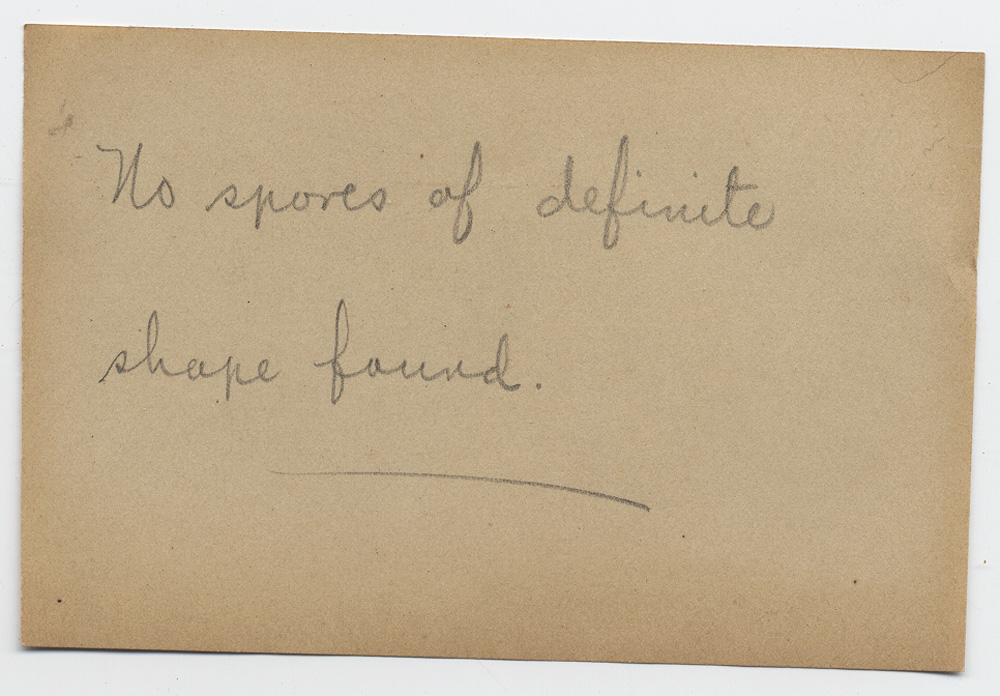 No spores of definite
shape found.